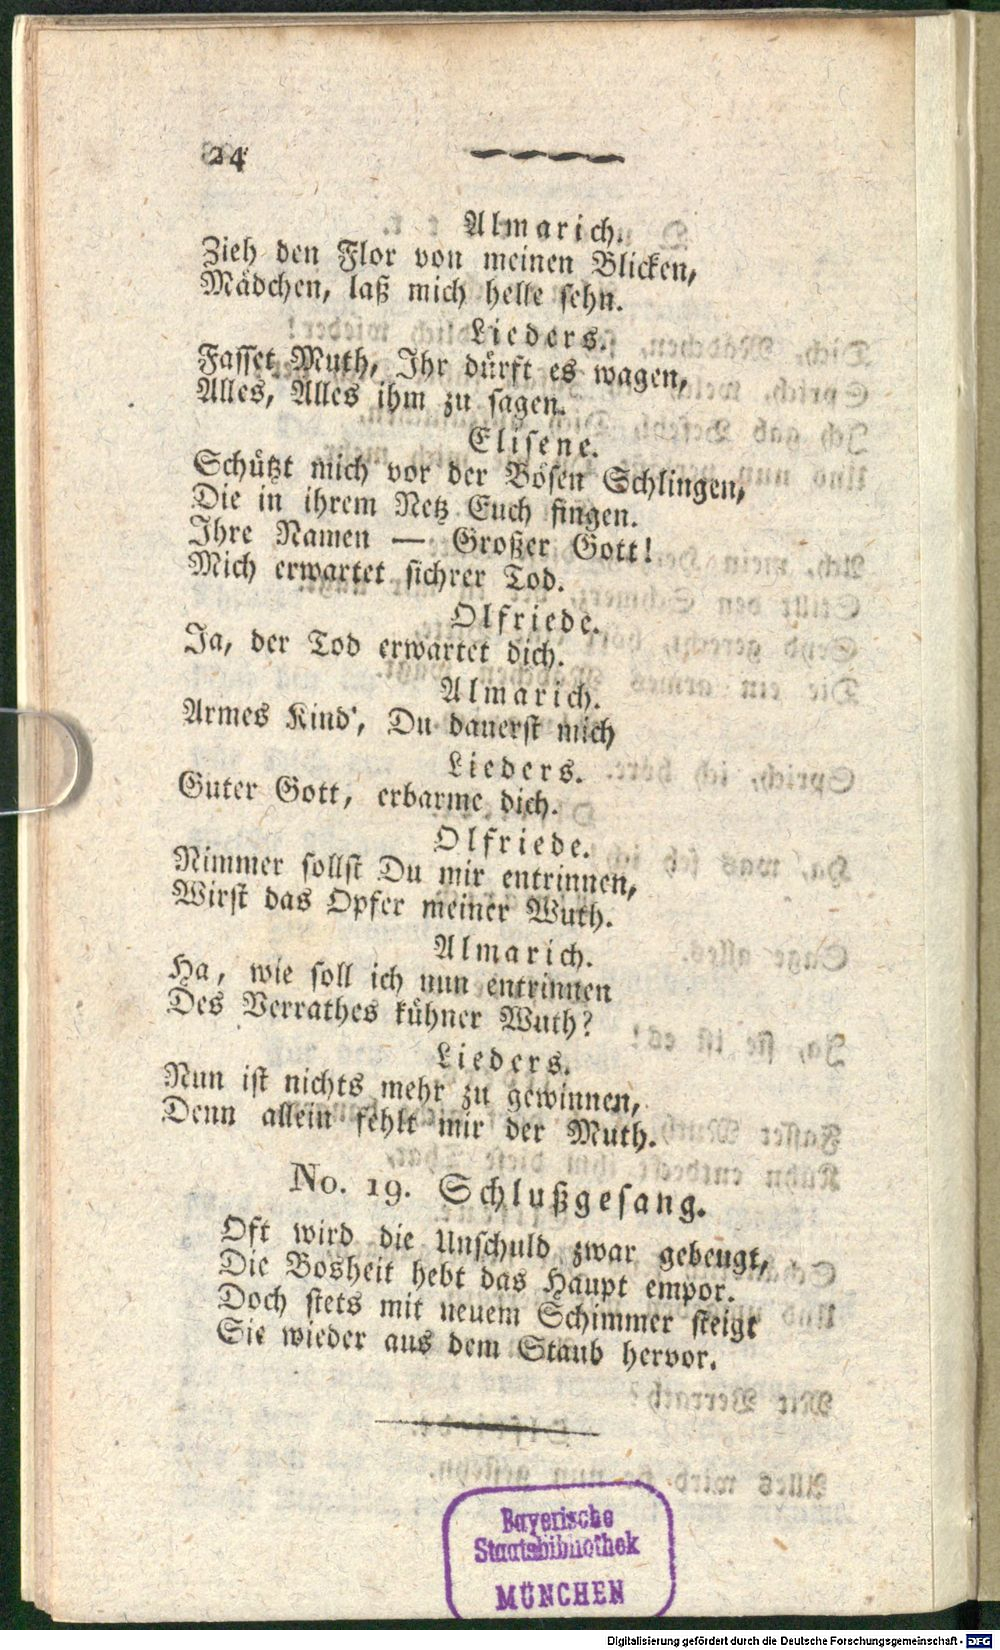 24
Almarich.
Zieh den Flor von meinen Blicken,
Mädchen, laß mich helle sehn.
Lieders.
Fasset Muth, Ihr dürft es wagen,
Alles, Alles ihm zu sagen.
Elisene.
Schützt mich vor der Bösen Schlingen,
Die in ihrem Netz Euch fingen.
Ihre Namen — Großer Gott!
Mich erwartet sichrer Tod.
Olfriede.
Ja, der Tod erwartet dich.
Almarich.
Armes Kind', Du dauerst mich
Lieders.
Guter Gott, erbarme dich.
Olfriede.
Nimmer sollst Du mir entrinnen,
Wirst das Opfer meiner Wuth.
Almarich.
Ha, wie soll ich nun entrinnen
Des Verrathes kühner Wuth?
Lieders.
Nun ist nichts mehr zu gewinnen,
Denn allein fehlt mir der Muth.
No. 19. Schlußgesang.
Oft wird die Unschuld zwar gebeugt,
Die Bosheit hebt das Haupt empor.
Doch stets mit neuem Schimmer steigt
Sie wieder aus dem Staub hervor.
Bayerische
Staatsbibliothek
MÜNCHEN
Digitalisierung gefördert durch die Deutsche Forschungsgemeinschaft - DFG